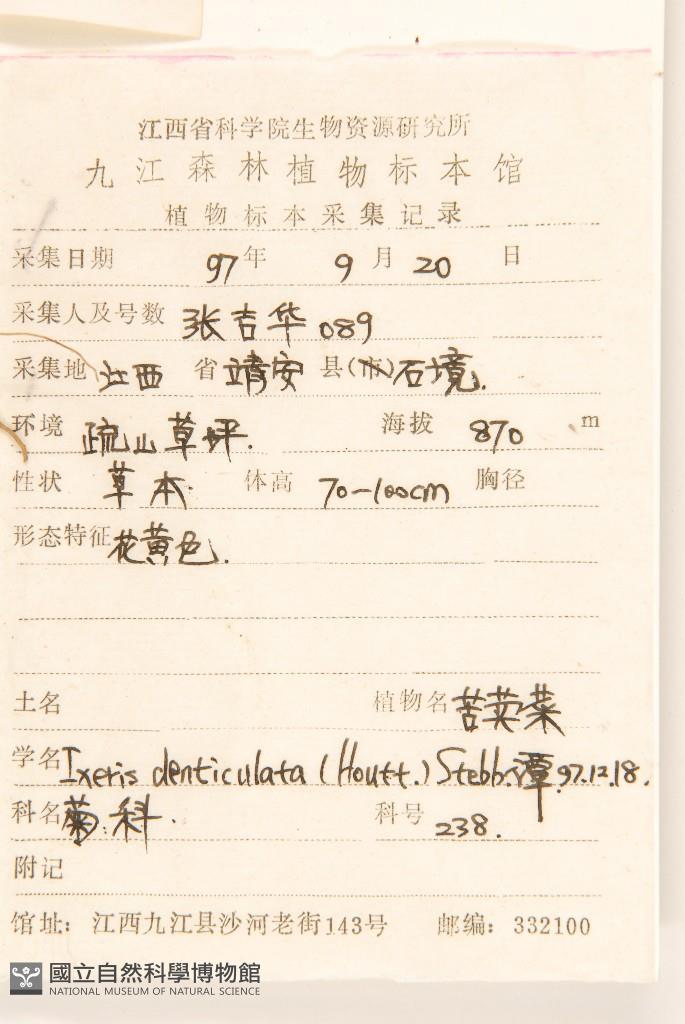 江西省科学院生物资源研究所
九江森林植物标本馆
植物标本采集记录
采集日期 97年 9月 20 日
采集人及号数 张吉华 089
采集地 江西 省 靖安 县(市) 石境.
环境 疏山草坪. 海拔 870 m
性状 草本. 体高 70-100cm 胸径
形态特征 花黄色.
土名 植物名 苦荬菜
学名 Ixeris denticulata (Houtt.) Stebb. 潭.97.12.18.
科名 菊科. 科号 238.
附记
馆址: 江西九江县沙河老街143号 邮编: 332100
國立自然科學博物館
NATIONAL MUSEUM OF NATURAL SCIENCE